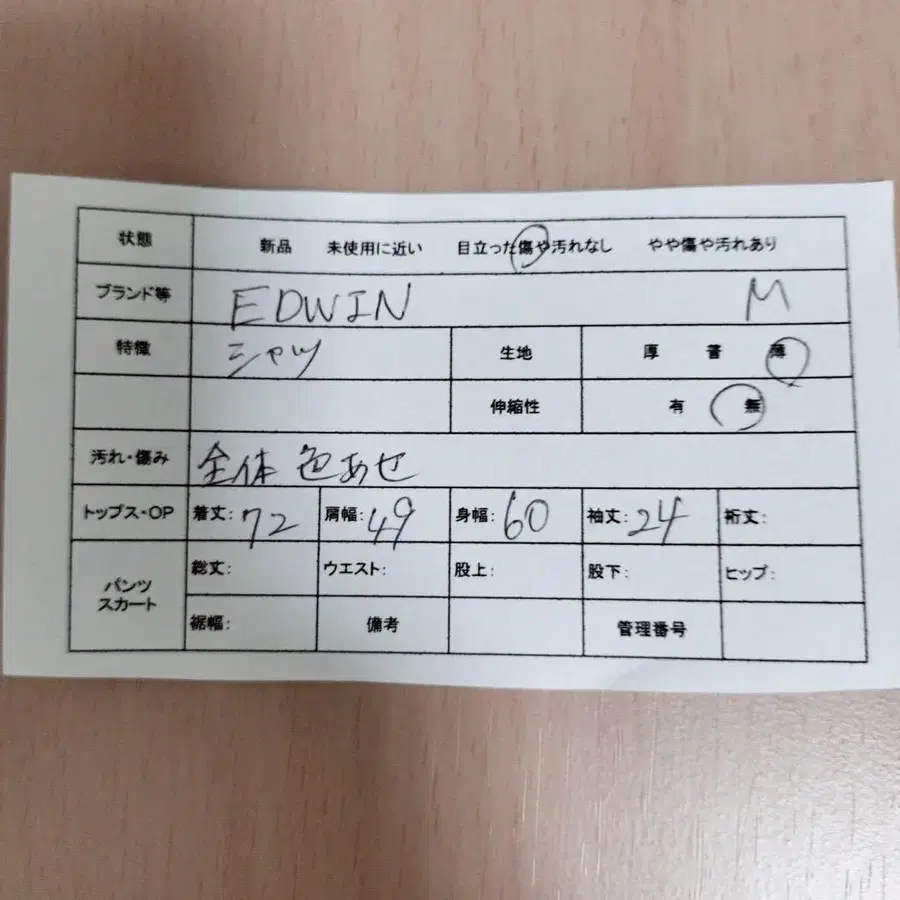 状態 新品 未使用に近い 目立った傷や汚れなし やや傷や汚れあり
ブランド等 EDWIN M
特徴 シャツ 生地 厚 普 薄
伸縮性 有 無
汚れ・傷み 全体 色あせ
トップス・OP 着丈: 72 肩幅: 49 身幅: 60 袖丈: 24 裄丈:
パンツ スカート 総丈: ウエスト: 股上: 股下: ヒップ:
裾幅: 備考 管理番号